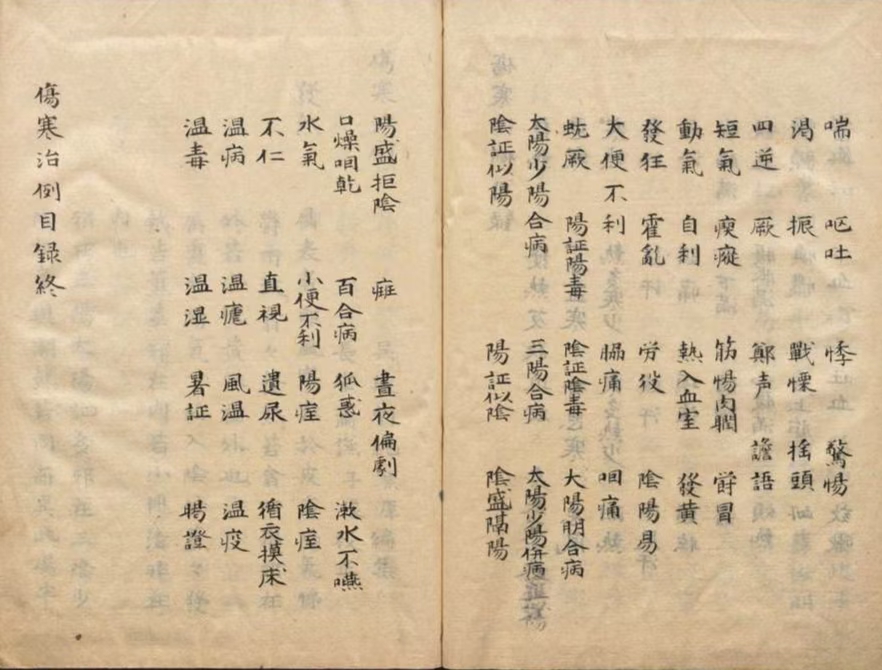 喘 呕吐 悸 驚惕
渴 振 戰慄 揺頭
四逆 厥 鄭声 譫語
短氣 瘈瘲 筋惕肉瞤 欝冒
動氣 自利 熱入血室 發黄
發狂 霍亂 労役 陰陽易
大便不利 腸痛 咽痛
蚘厥 陽証陽毒 陰証陰毒 大陽明合病
太陽少陽合病 三陽合病 太陽少陽併病
陰証似陽 陽証似陰 陰盛隔陽
陽盛拒陰 疰 晝夜偏劇
口燥咽乾 百合病 狐惑 漱水不嚥
水氣 小便不利 陽痓 陰痓
不仁 直視 遺尿 循衣摸床
温病 温瘧 風温 温疫
温毒 温湿 暑証 暍證
傷寒治例目録終